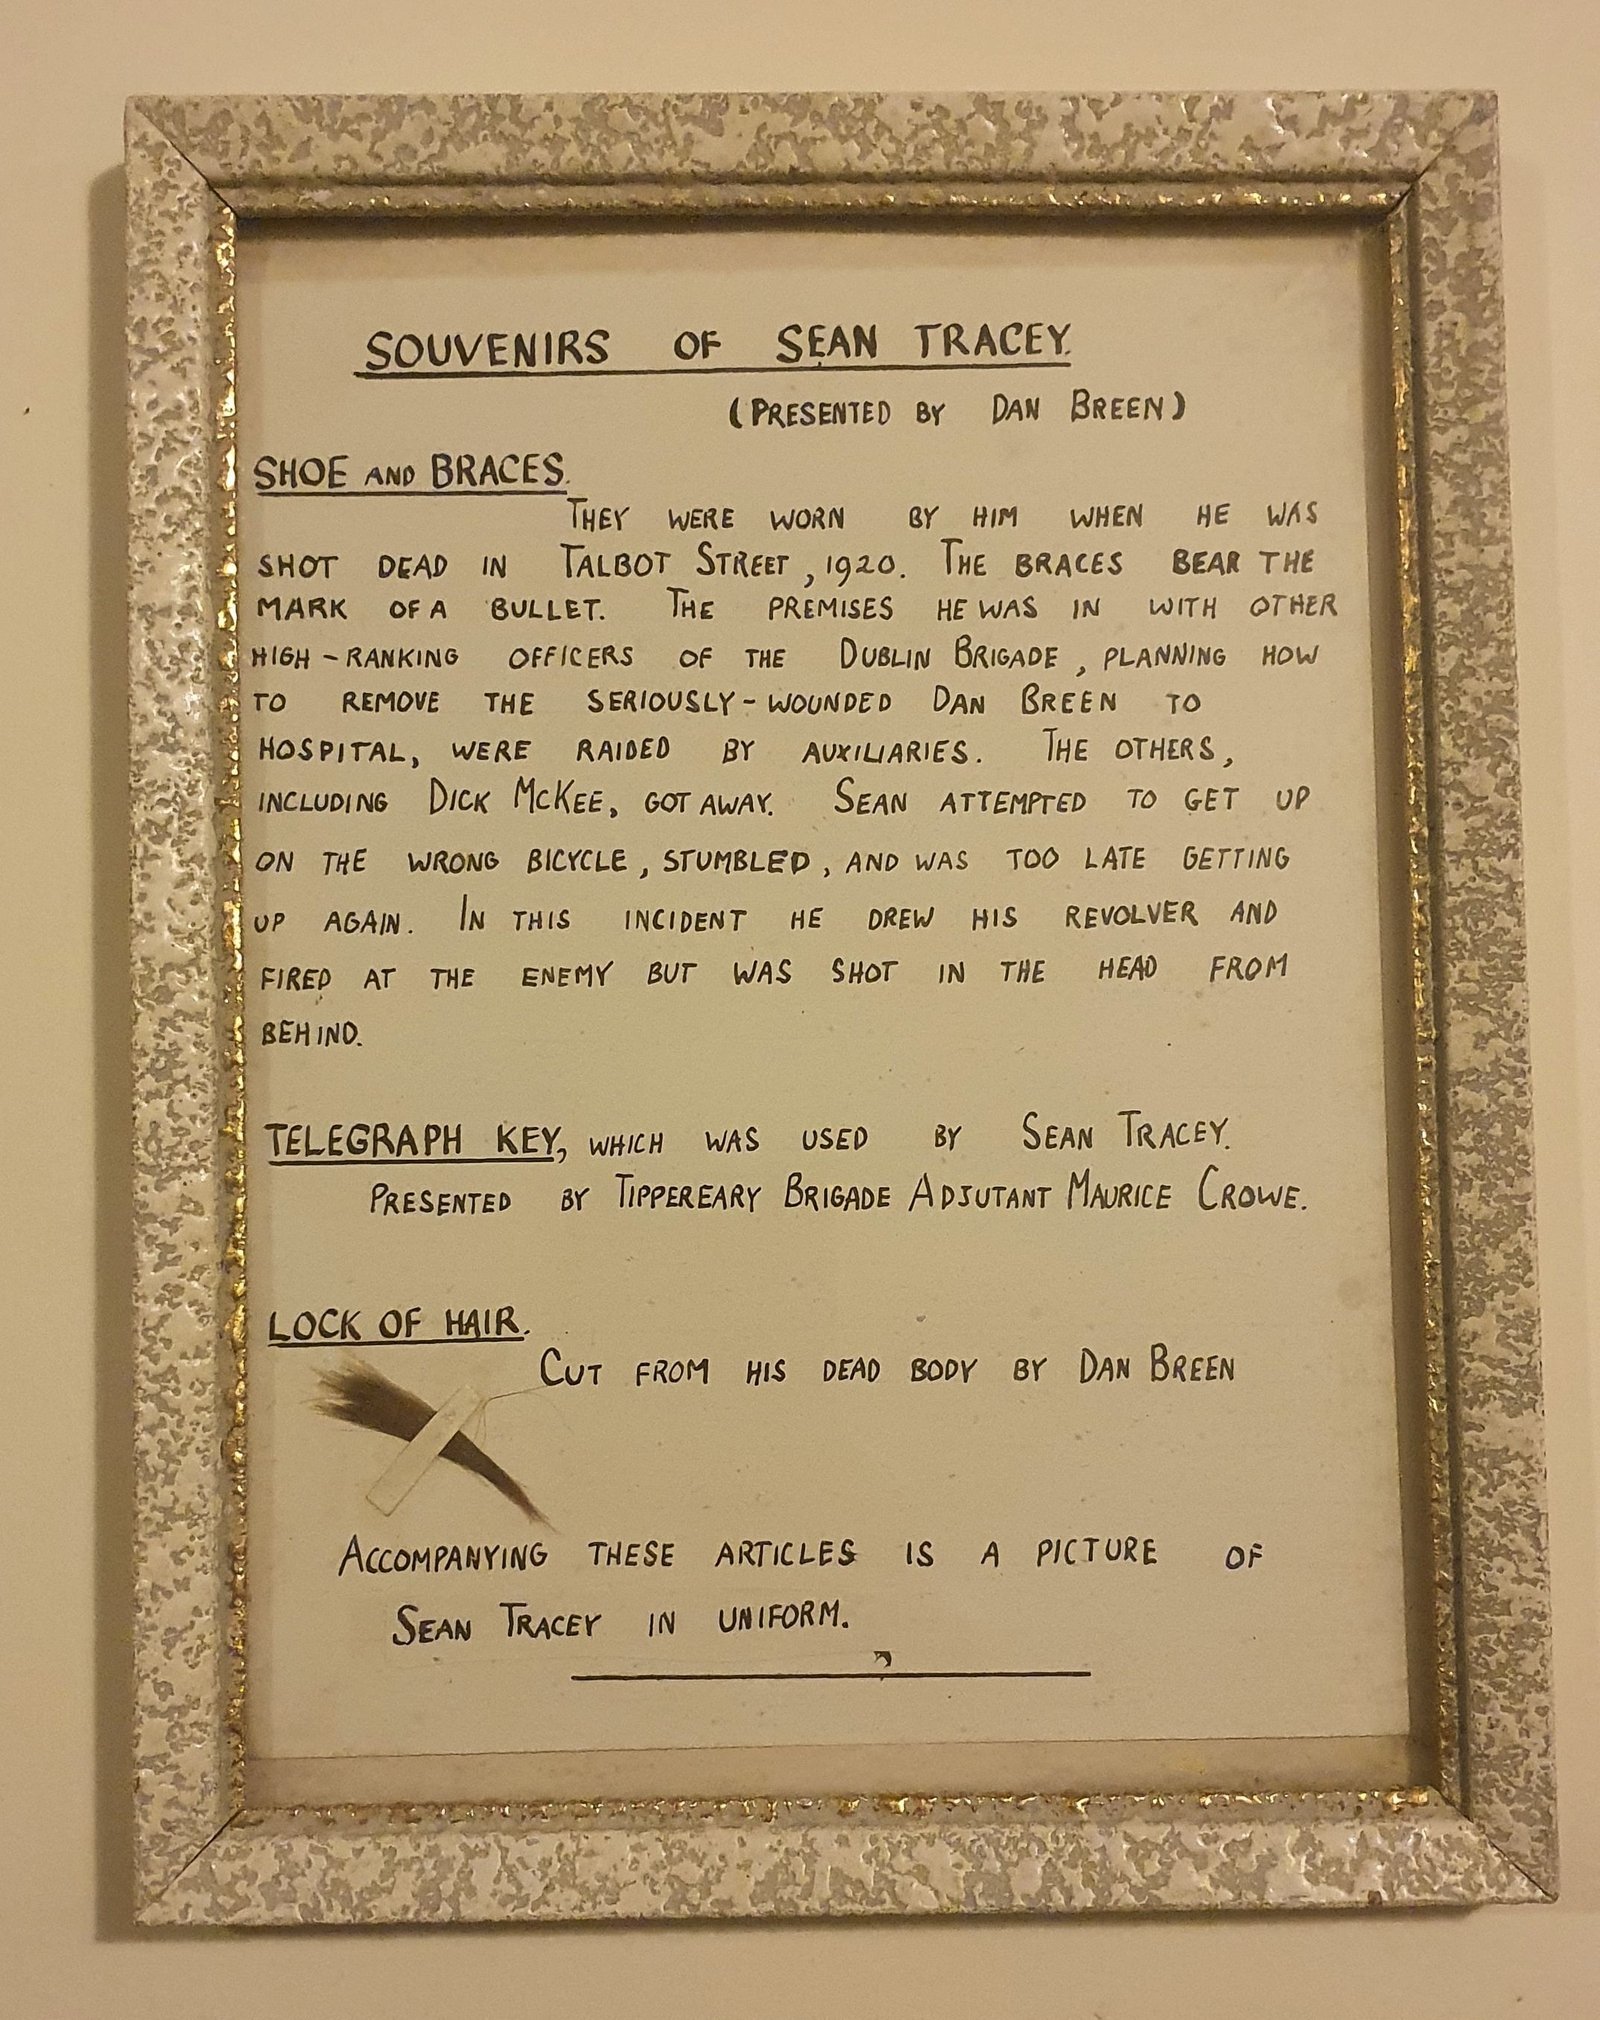 SOUVENIRS OF SEAN TRACEY.
(PRESENTED BY DAN BREEN)
SHOE AND BRACES.
THEY WERE WORN BY HIM WHEN HE WAS
SHOT DEAD IN TALBOT STREET, 1920. THE BRACES BEAR THE
MARK OF A BULLET. THE PREMISES HE WAS IN WITH OTHER
HIGH-RANKING OFFICERS OF THE DUBLIN BRIGADE, PLANNING HOW
TO REMOVE THE SERIOUSLY-WOUNDED DAN BREEN TO
HOSPITAL, WERE RAIDED BY AUXILIARIES. THE OTHERS,
INCLUDING DICK MCKEE, GOT AWAY. SEAN ATTEMPTED TO GET UP
ON THE WRONG BICYCLE, STUMBLED, AND WAS TOO LATE GETTING
UP AGAIN. IN THIS INCIDENT HE DREW HIS REVOLVER AND
FIRED AT THE ENEMY BUT WAS SHOT IN THE HEAD FROM
BEHIND.
TELEGRAPH KEY, WHICH WAS USED BY SEAN TRACEY.
PRESENTED BY TIPPEREARY BRIGADE ADJUTANT MAURICE CROWE.
LOCK OF HAIR.
CUT FROM HIS DEAD BODY BY DAN BREEN
ACCOMPANYING THESE ARTICLES IS A PICTURE OF
SEAN TRACEY IN UNIFORM.